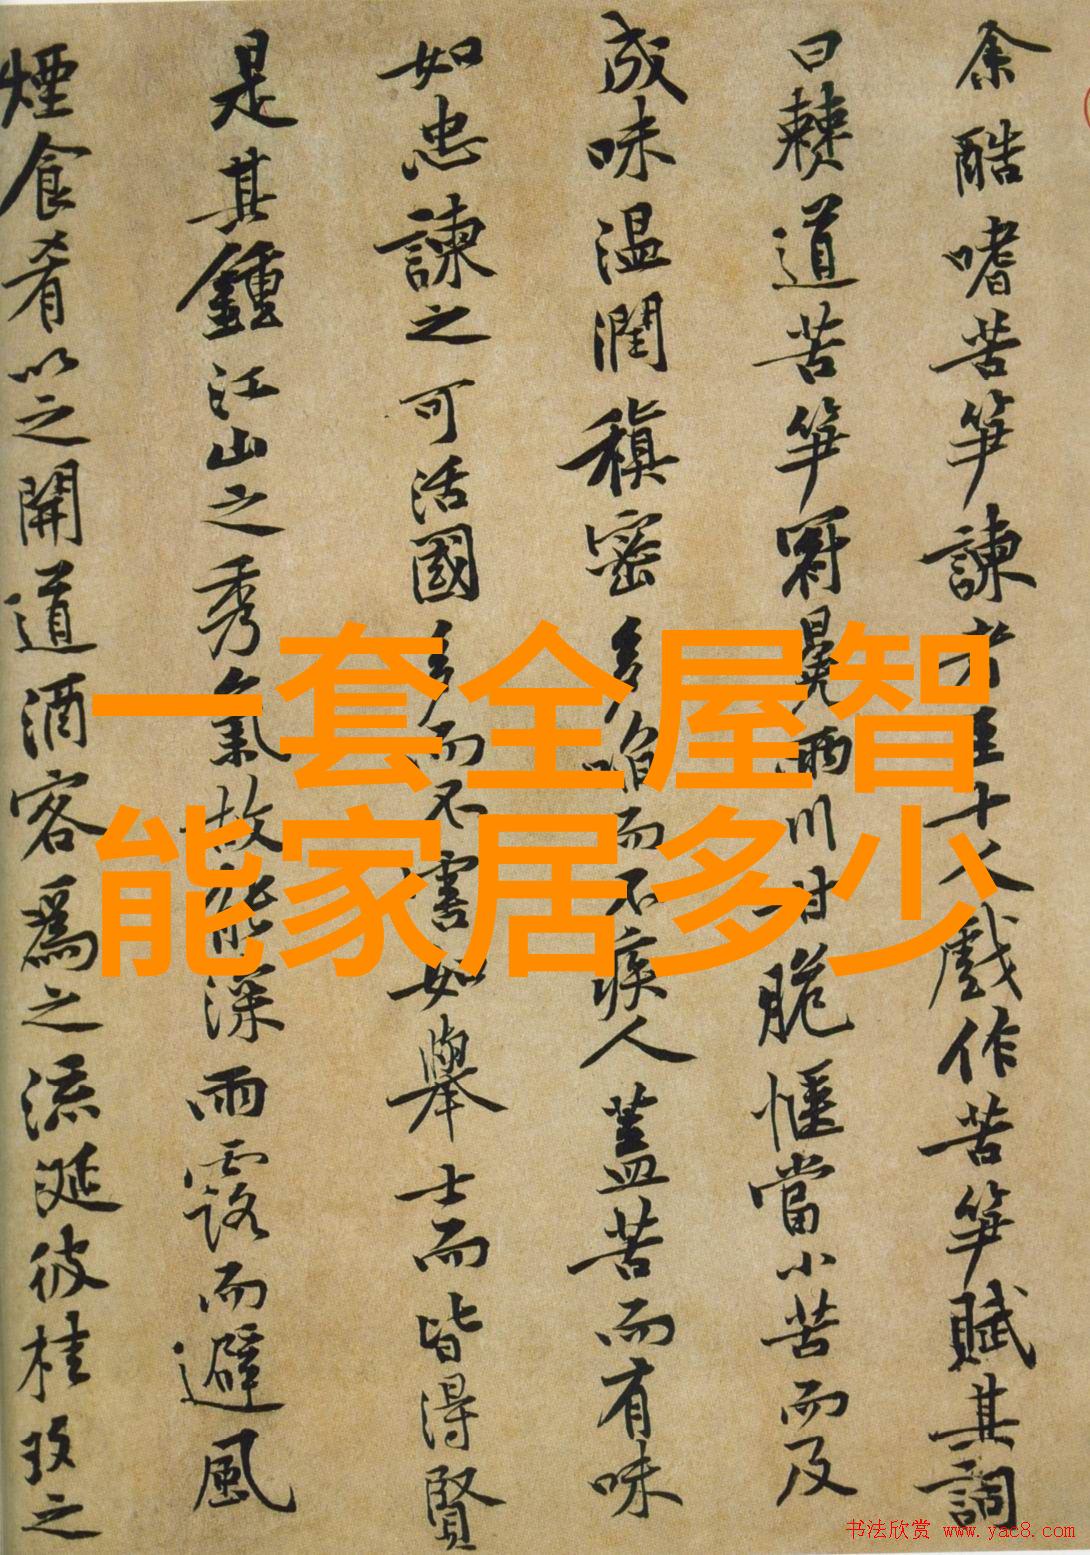 余酷嗜苦笋諫者至十人戲作苦笋賦其詞
曰僰道苦笋冠冕兩川甘脆愜當小苦而及
成味温潤稹密多啗而不疾人蓋苦而有味
如忠諫之可活國多而不害如舉士而皆得賢
是其鍾江山之秀氣故能深雨露而避風
煙食肴以之開道酒客為之流涎彼桂玫之
一套全屋智
能家居多少
书法欣赏 www.yac8.com